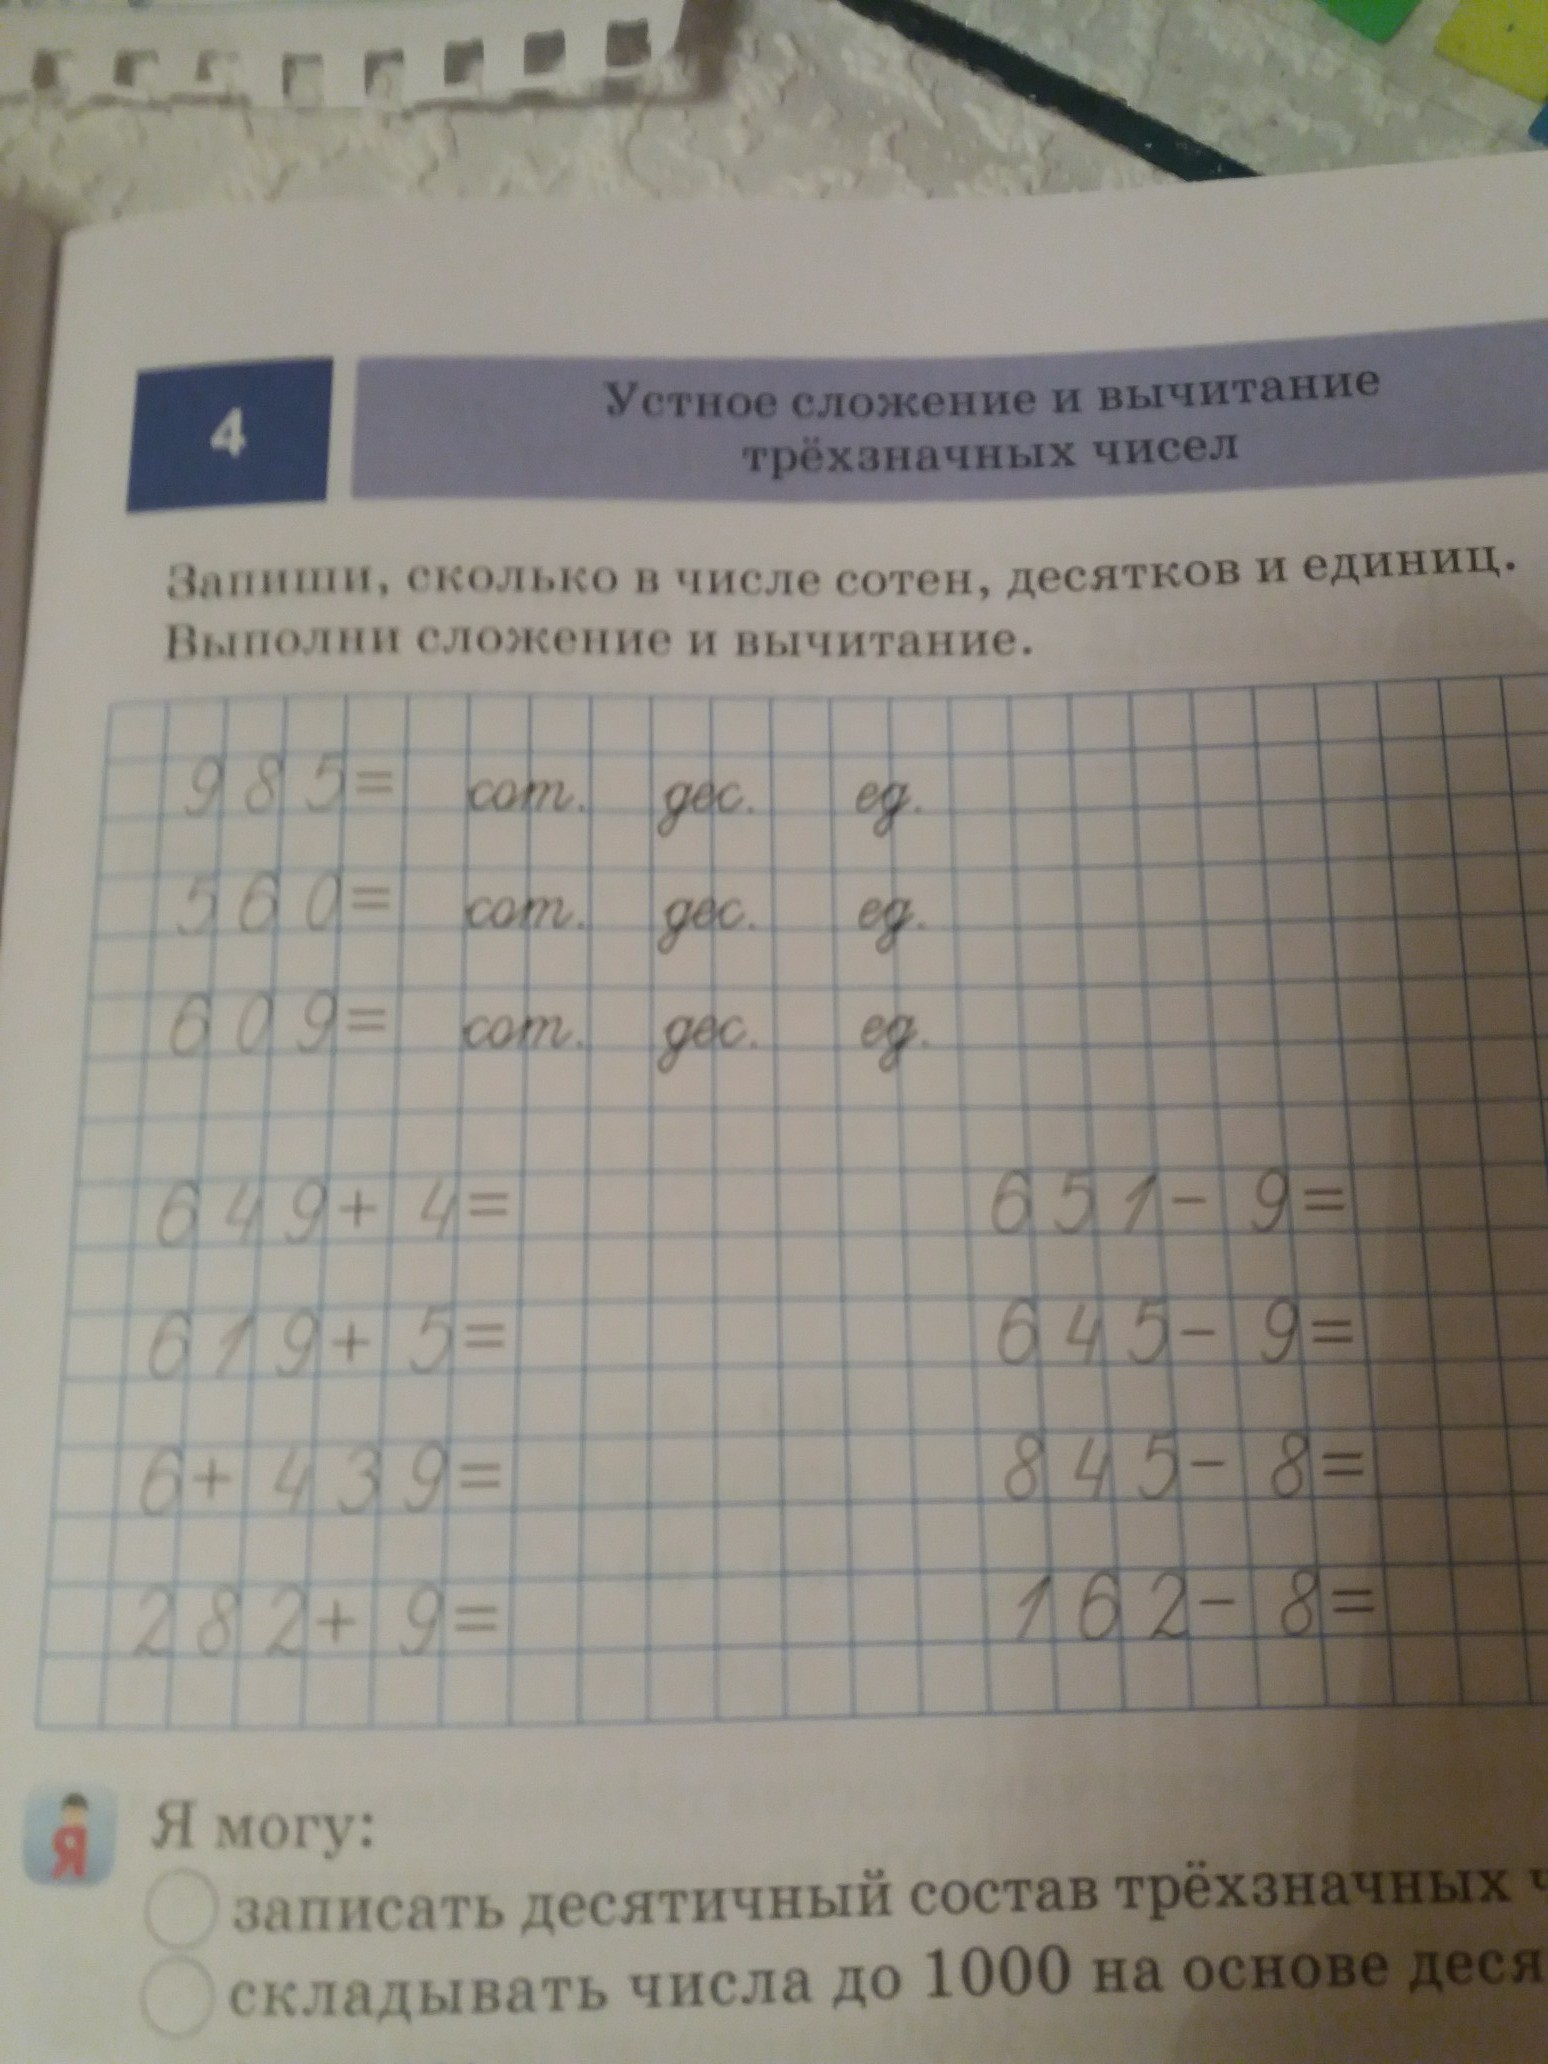 4
Устное сложение и вычитание
трёхзначных чисел
Запиши, сколько в числе сотен, десятков и единиц.
Выполни сложение и вычитание.
985= сот. дес. ед.
560= сот. дес. ед.
609= сот. дес. ед.
649+ 4= 651- 9=
619+ 5= 645- 9=
6+ 439= 845- 8=
282+ 9= 162- 8=
Я
Я могу:
записать десятичный состав трёхзначных
складывать числа до 1000 на основе